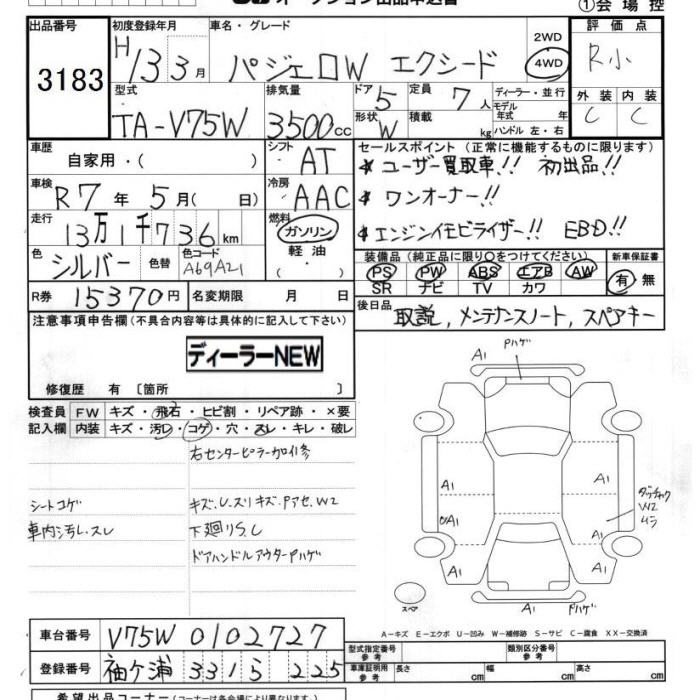 ①会場控
出品番号 3183
初度登録年月 H13 3月
車名・グレード パジェロW エクシード
2WD 4WD
評価点 R小
外装 C 内装 C
型式 TA-V75W
排気量 3500cc
ドア 5 形状 W
定員 7人 積載 kg
ディーラー・並行
モデル年式 年式
ハンドル 左・右
車歴 自家用・( )
シフト AT
車検 R7年5月( 日)
冷房 AAC
走行 13万1千736km
燃料 ガソリン 軽油 ・
色 シルバー 色替 色コード A69A21
R券 15370円 名変期限 月 日
セールスポイント (正常に機能するものに限ります)
* ユーザー買取車!! 初出品!!
* ワンオーナー!!
* エンジンイモビライザー!! EBD!!
装備品 (純正品に限り○をつけてください) 新車保証書
PS PW ABS エアB AW 有・無
SR ナビ TV カワ
後日品 取説, メンテナンスノート, スペアキー
注意事項申告欄 (不具合内容等は具体的に記入して下さい)
ディーラーNEW
修復歴 有 〔箇所 〕
検査員 FW キズ・飛石・ヒビ割・リペア跡・×要
記入欄 内装 キズ・汚レ・コゲ・穴・スレ・キレ・破レ
右センターピラー加修
シートコゲ
キズ.U.スリキズ.Pアセ.W2
車内汚レ.スレ
下廻リS.C
ドアハンドルアウターPハゲ
A1 Pハゲ
A1 A1
A1 A1
ダッチャク W2 ムラ
A1 A1
スペア
A1 Pハゲ
A-キズ E-エクボ U-凹み W-補修跡 S-サビ C-腐食 XX-交換済
車台番号 V75W 0102727
登録番号 袖ケ浦 331 5 225
型式指定番号 参考 類別区分番号 参考
車庫証明用 参考 長さ cm 幅 cm 高さ cm
希望出品コーナー (コーナーは各会場により異なります)